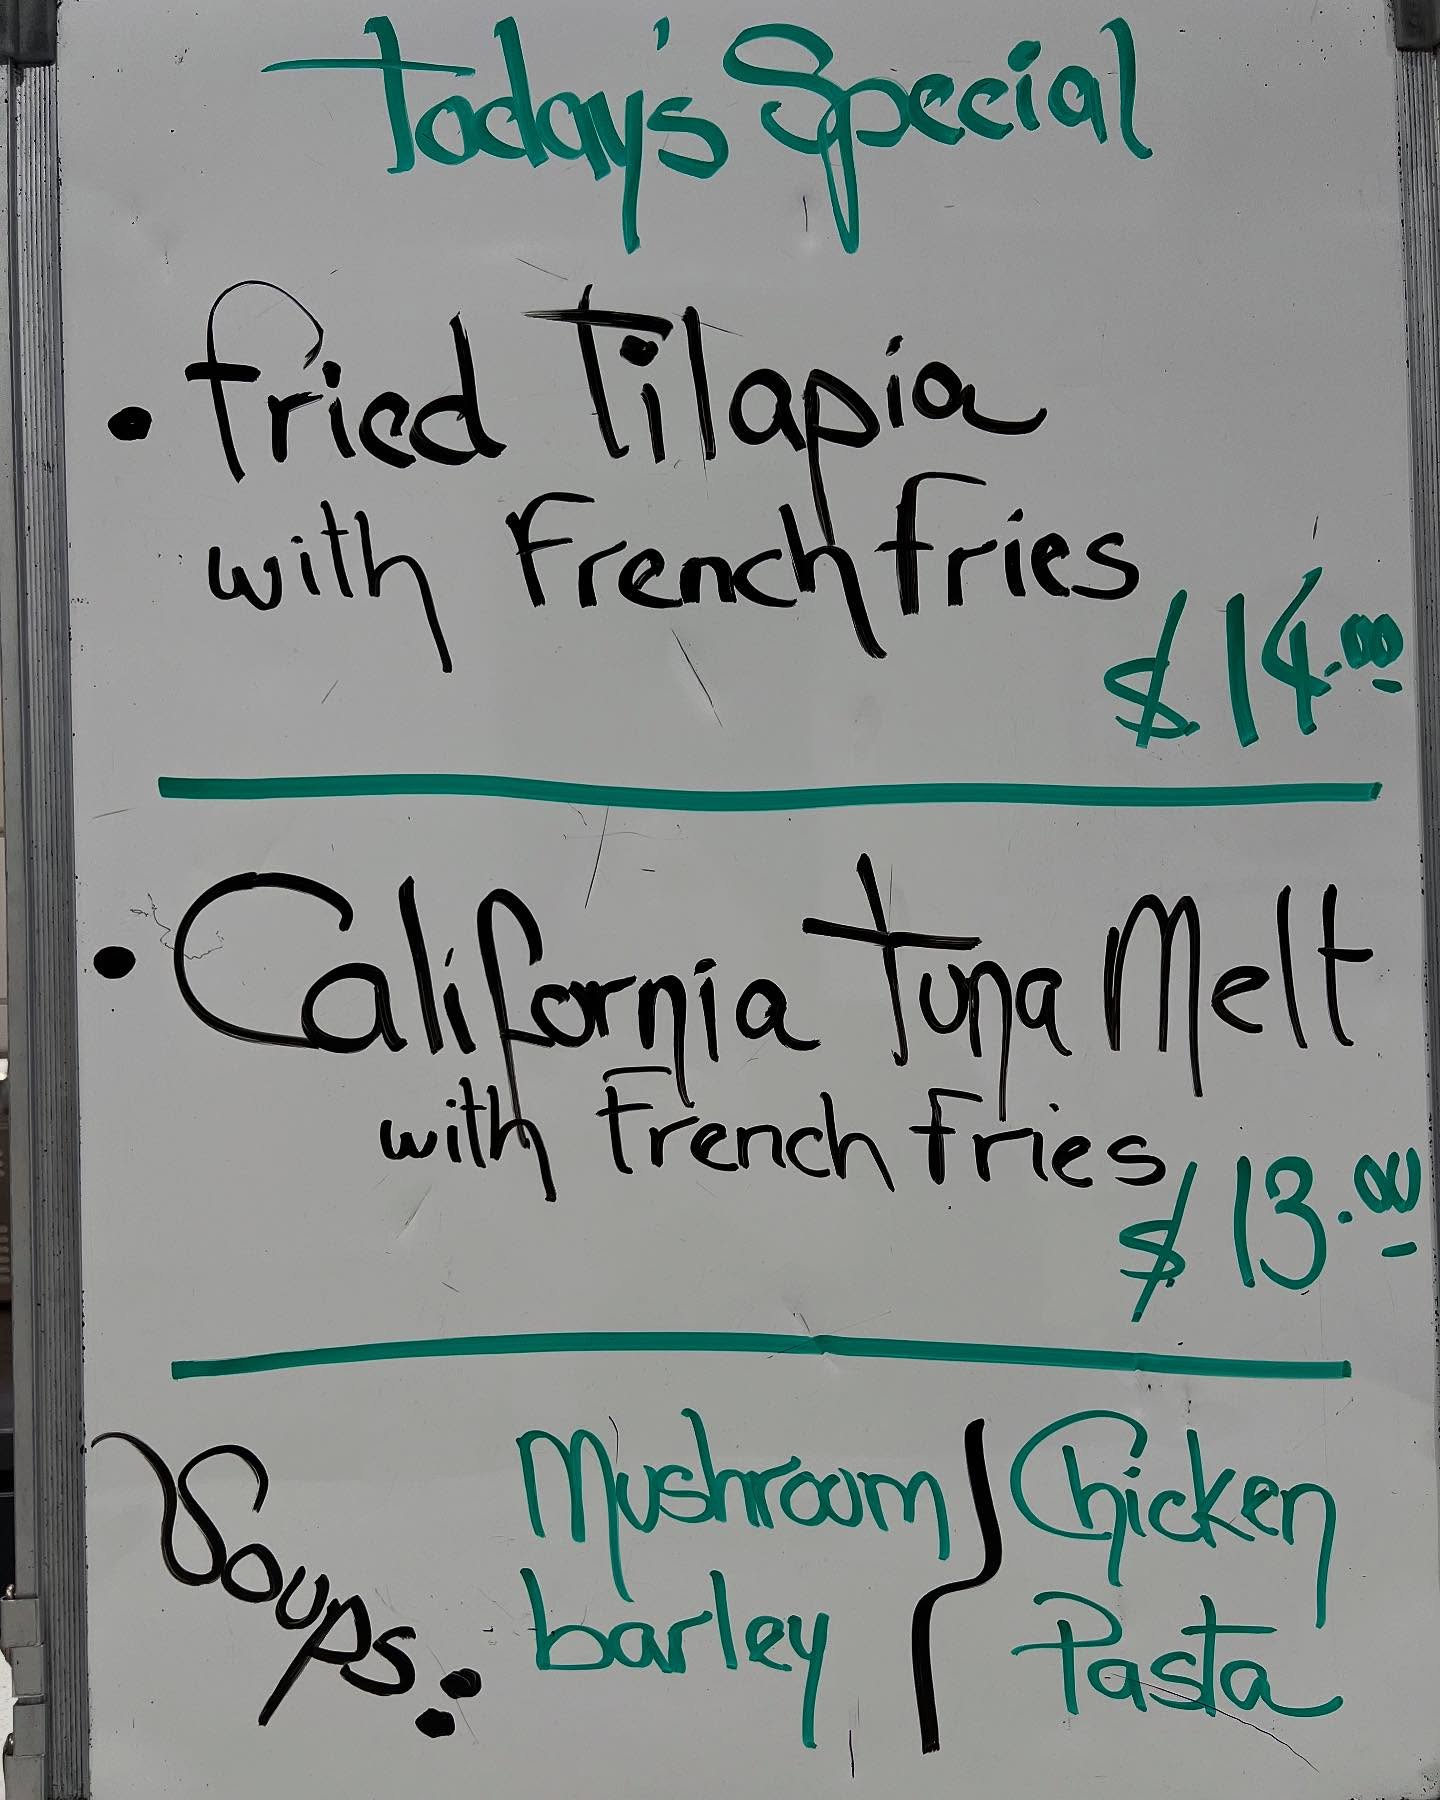 Today's Special
• Fried Tilapia
with French fries
$14.00
• California Tuna Melt
with French fries
$13.00
Soups:
Mushroom
barley
Chicken
Pasta